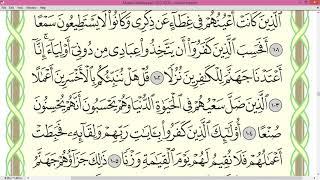 الَّذِينَ كَانَتْ أَعْيُنُهُمْ فِي غِطَآءٍ عَن ذِكْرِي وَكَانُوا۟ لَا يَسْتَطِيعُونَ سَمْعًا
١٠١ أَفَحَسِبَ الَّذِينَ كَفَرُوٓا۟ أَن يَتَّخِذُوا۟ عِبَادِي مِن دُونِيٓ أَوْلِيَآءَ ۚ إِنَّآ
أَعْتَدْنَا جَهَنَّمَ لِلْكَٰفِرِينَ نُزُلًا ١٠٢ قُلْ هَلْ نُنَبِّئُكُم بِالْأَخْسَرِينَ أَعْمَٰلًا
١٠٣ الَّذِينَ ضَلَّ سَعْيُهُمْ فِي الْحَيَوٰةِ الدُّنْيَا وَهُمْ يَحْسَبُونَ أَنَّهُمْ يُحْسِنُونَ
صُنْعًا ١٠٤ أُو۟لَٰٓئِكَ الَّذِينَ كَفَرُوا۟ بِـَٔايَٰتِ رَبِّهِمْ وَلِقَآئِهِۦ فَحَبِطَتْ
أَعْمَٰلُهُمْ فَلَا نُقِيمُ لَهُمْ يَوْمَ الْقِيَٰمَةِ وَزْنًا ١٠٥ ذَٰلِكَ جَزَآؤُهُمْ جَهَنَّمُ